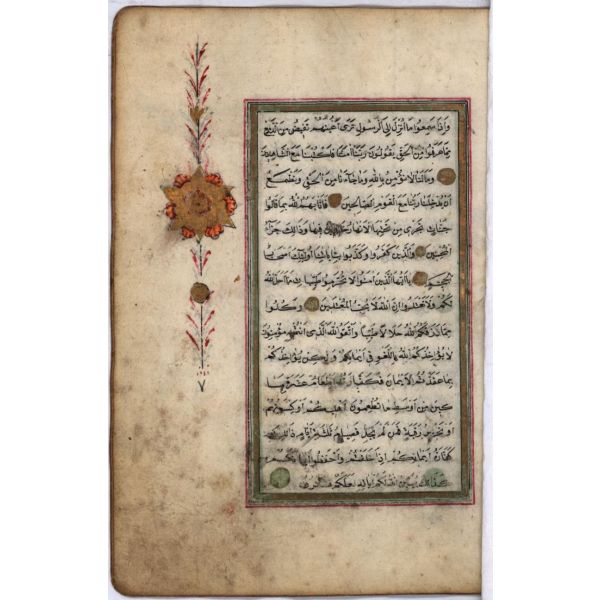 وَاِذَا سَمِعُوا مَا اُنْزِلَ اِلَى الرَّسُولِ تَرٰى اَعْيُنَهُمْ تَفِيضُ مِنَ الدَّمْعِ
مِمَّا عَرَفُوا مِنَ الْحَقِّ يَقُولُونَ رَبَّنَا اٰمَنَّا فَاكْتُبْنَا مَعَ الشَّاهِدِينَ
وَمَا لَنَا لَا نُؤْمِنُ بِاللّٰهِ وَمَا جَاءَنَا مِنَ الْحَقِّ وَنَطْمَعُ
اَنْ يُدْخِلَنَا رَبُّنَا مَعَ الْقَوْمِ الصَّالِحِينَ فَاَثَابَهُمُ اللّٰهُ بِمَا قَالُوا
جَنَّاتٍ تَجْرِى مِنْ تَحْتِهَا الْاَنْهَارُ خَالِدِينَ فِيهَا وَذٰلِكَ جَزَاءُ
الْمُحْسِنِينَ وَالَّذِينَ كَفَرُوا وَكَذَّبُوا بِاٰيَاتِنَا اُولٰئِكَ اَصْحَابُ
الْجَحِيمِ يَا اَيُّهَا الَّذِينَ اٰمَنُوا لَا تُحَرِّمُوا طَيِّبَاتِ مَا اَحَلَّ اللّٰهُ
لَكُمْ وَلَا تَعْتَدُوا اِنَّ اللّٰهَ لَا يُحِبُّ الْمُعْتَدِينَ وَكُلُوا
مِمَّا رَزَقَكُمُ اللّٰهُ حَلَالًا طَيِّبًا وَاتَّقُوا اللّٰهَ الَّذِى اَنْتُمْ بِهِ مُؤْمِنُونَ
لَا يُؤَاخِذُكُمُ اللّٰهُ بِاللَّغْوِ فِى اَيْمَانِكُمْ وَلٰكِنْ يُؤَاخِذُكُمْ
بِمَا عَقَّدْتُمُ الْاَيْمَانَ فَكَفَّارَتُهُ اِطْعَامُ عَشَرَةِ مَسَا
كِينَ مِنْ اَوْسَطِ مَا تُطْعِمُونَ اَهْلِيكُمْ اَوْ كِسْوَتُهُمْ
اَوْ تَحْرِيرُ رَقَبَةٍ فَمَنْ لَمْ يَجِدْ فَصِيَامُ ثَلٰثَةِ اَيَّامٍ ذٰلِكَ
كَفَّارَةُ اَيْمَانِكُمْ اِذَا حَلَفْتُمْ وَاحْفَظُوا اَيْمَانَكُمْ
كَذٰلِكَ يُبَيِّنُ اللّٰهُ لَكُمْ اٰيَاتِهِ لَعَلَّكُمْ تَشْكُرُونَ